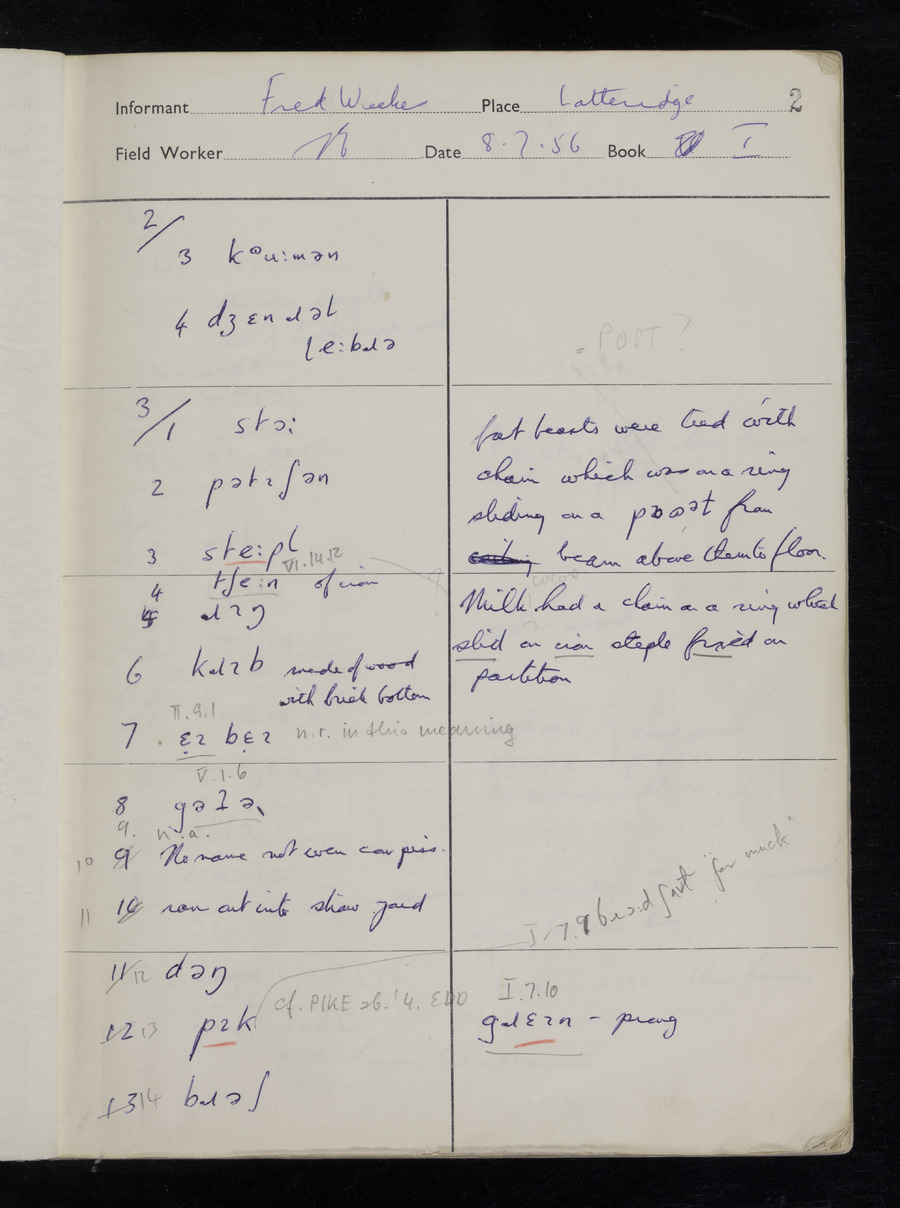 Informant Fred Weekes Place Latteridge 2
Field Worker Date 8.7.56 Book I
2/
3 kᶿu:mən
4 dʒɛnɹəl
le:bɹə
- POST ?
3/
1 stɔ:
2 pətɪʃən
3 ste:pl
VI.14.12
4 tʃe:n of iron
5 ɹɪŋ
6 kɹɪb made of wood
with brick bottom
II.9.1
7 . ɛɪ bɛɪ n.r. in this meaning
V.1.6
8 gəɪə
9. n.a.
10 9 No name not even cow piss.
11 10 ran out into straw yard
11 12 dəŋ
12 13 pɪk cf. PIKE sb. '4. EDD
13 14 bɹəʃ
fat beasts were tied with
chain which was on a ring
sliding on a post from
beam above them to floor.
Milk had a chain on a ring which
slid on iron steple fixed on
partition
I.7.9 "for muck"
I.7.10
gɹɛɪn - prong